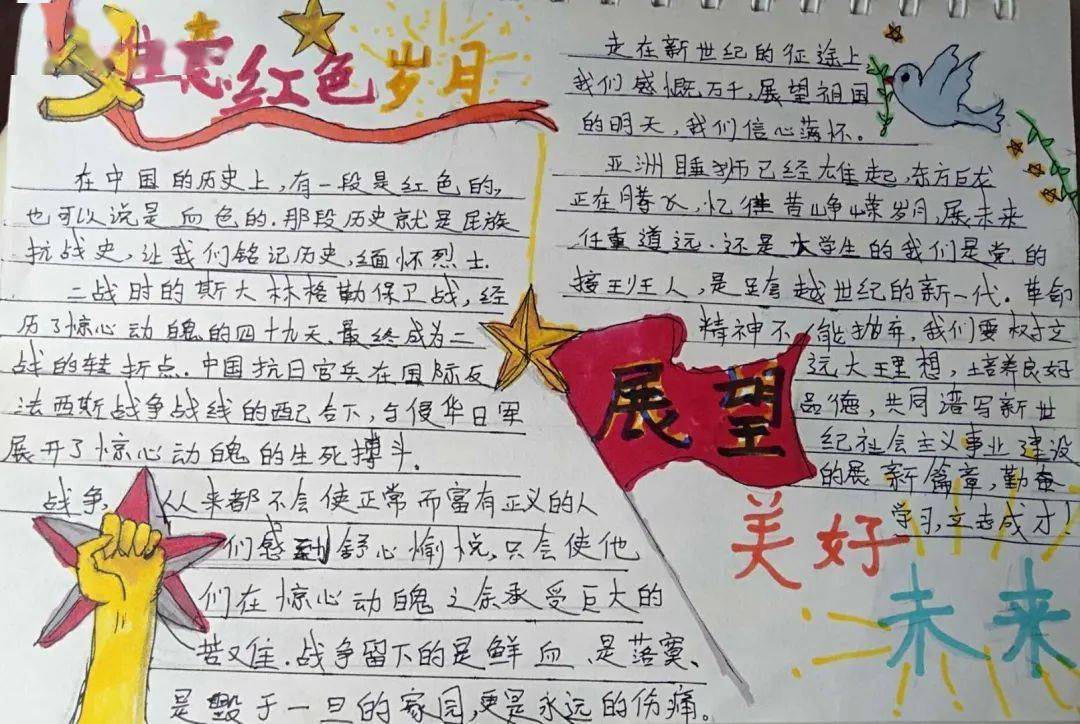 红色岁月
在中国的历史上，有一段是红色的，
也可以说是血色的．那段历史就是民族
抗战史，让我们铭记历史，缅怀烈士．
二战时的斯大林格勒保卫战，经
历了惊心动魄的四十九天．最终成为二
战的转折点．中国抗日官兵在国际反
法西斯战争战线的配合下，与侵华日军
展开了惊心动魄的生死搏斗．
战争，从来都不会使正常而富有正义的人
们感到舒心愉悦，只会使他
们在惊心动魄之余承受巨大的
苦难．战争留下的是鲜血、是落寞、
是毁于一旦的家园，更是永远的伤痛。
走在新世纪的征途上，
我们感慨万千，展望祖国
的明天，我们信心满怀。
亚洲睡狮已经雄起，东方巨龙
正在腾飞，忆往昔峥嵘岁月，展未来
任重道远．还是大学生的我们是党的
接班人，是跨越世纪的新一代．革命
精神不能抛弃，我们要树立
远大理想，培养良好
品德，共同谱写新世
纪社会主义事业建设
的展新篇章，勤奋
学习，立志成才！
展望
美好
未来